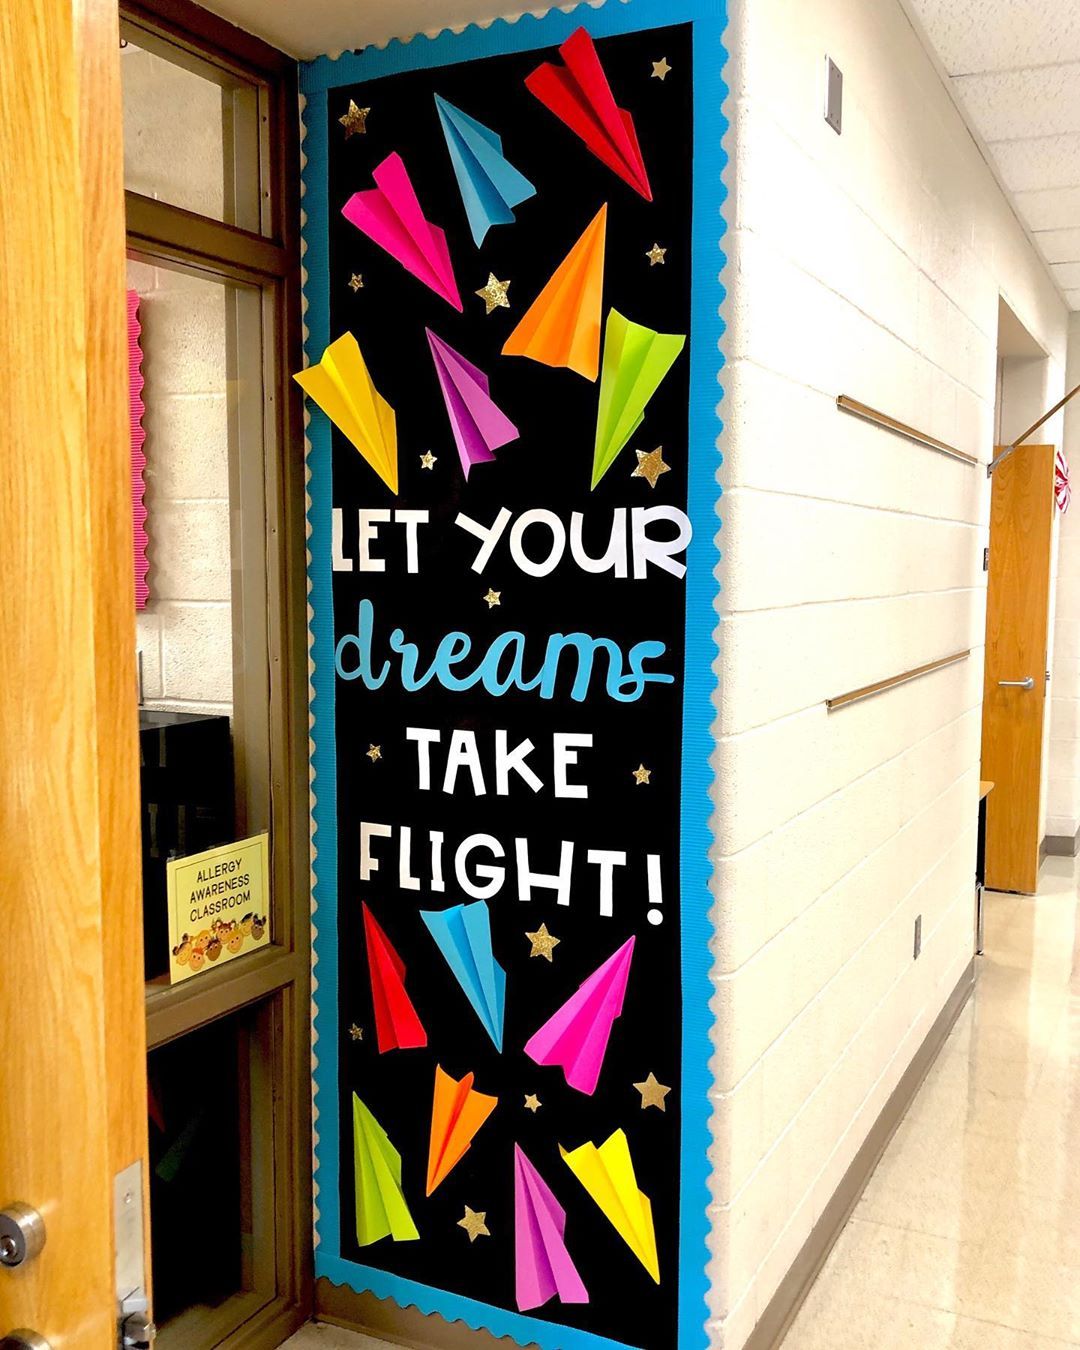 LET YOUR
dreams
TAKE
FLIGHT!
ALLERGY
AWARENESS
CLASSROOM